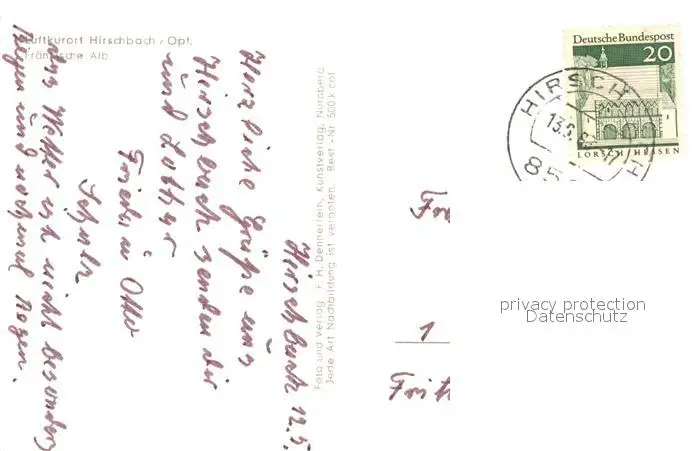 Luftkurort Hirschbach, Opf.
Fränkische Alb
Hirschbach 12.5.
Herzliche Grüße aus
Hirschbach senden dir
und Lothar
Frieda u Otto
das Wetter ist nicht besonders
Regen und nochmal Regen.
Foto und Verlag: F. H. Dennerlein, Kunstverlag, Nürnberg
Jede Art Nachbildung ist verboten. Best.-Nr. 500 k col
Deutsche Bundespost
20
LORSCH/HESSEN
HIRSCH
13.5.
85
H
1
privacy protection
Datenschutz